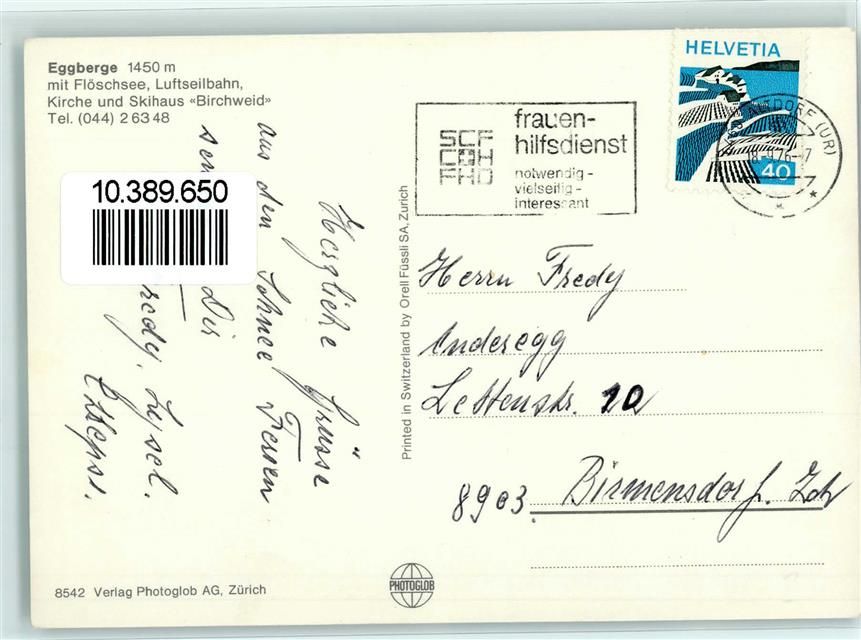 Eggberge 1450 m
mit Flöschsee, Luftseilbahn,
Kirche und Skihaus «Birchweid»
Tel. (044) 2 63 48
10.389.650
Herzliche Grüsse
aus den Schnee Ferien
Dir
Printed in Switzerland by Orell Füssli SA, Zürich
SCF
CMH
FHD
frauen-
hilfsdienst
notwendig -
vielseitig -
interessant
HELVETIA
40
ALTDORF (UR)
Herrn Fredy
Anderegg
Lettenstr. 20
8903 Birmensdorf. Zch
8542 Verlag Photoglob AG, Zürich
PHOTOGLOB